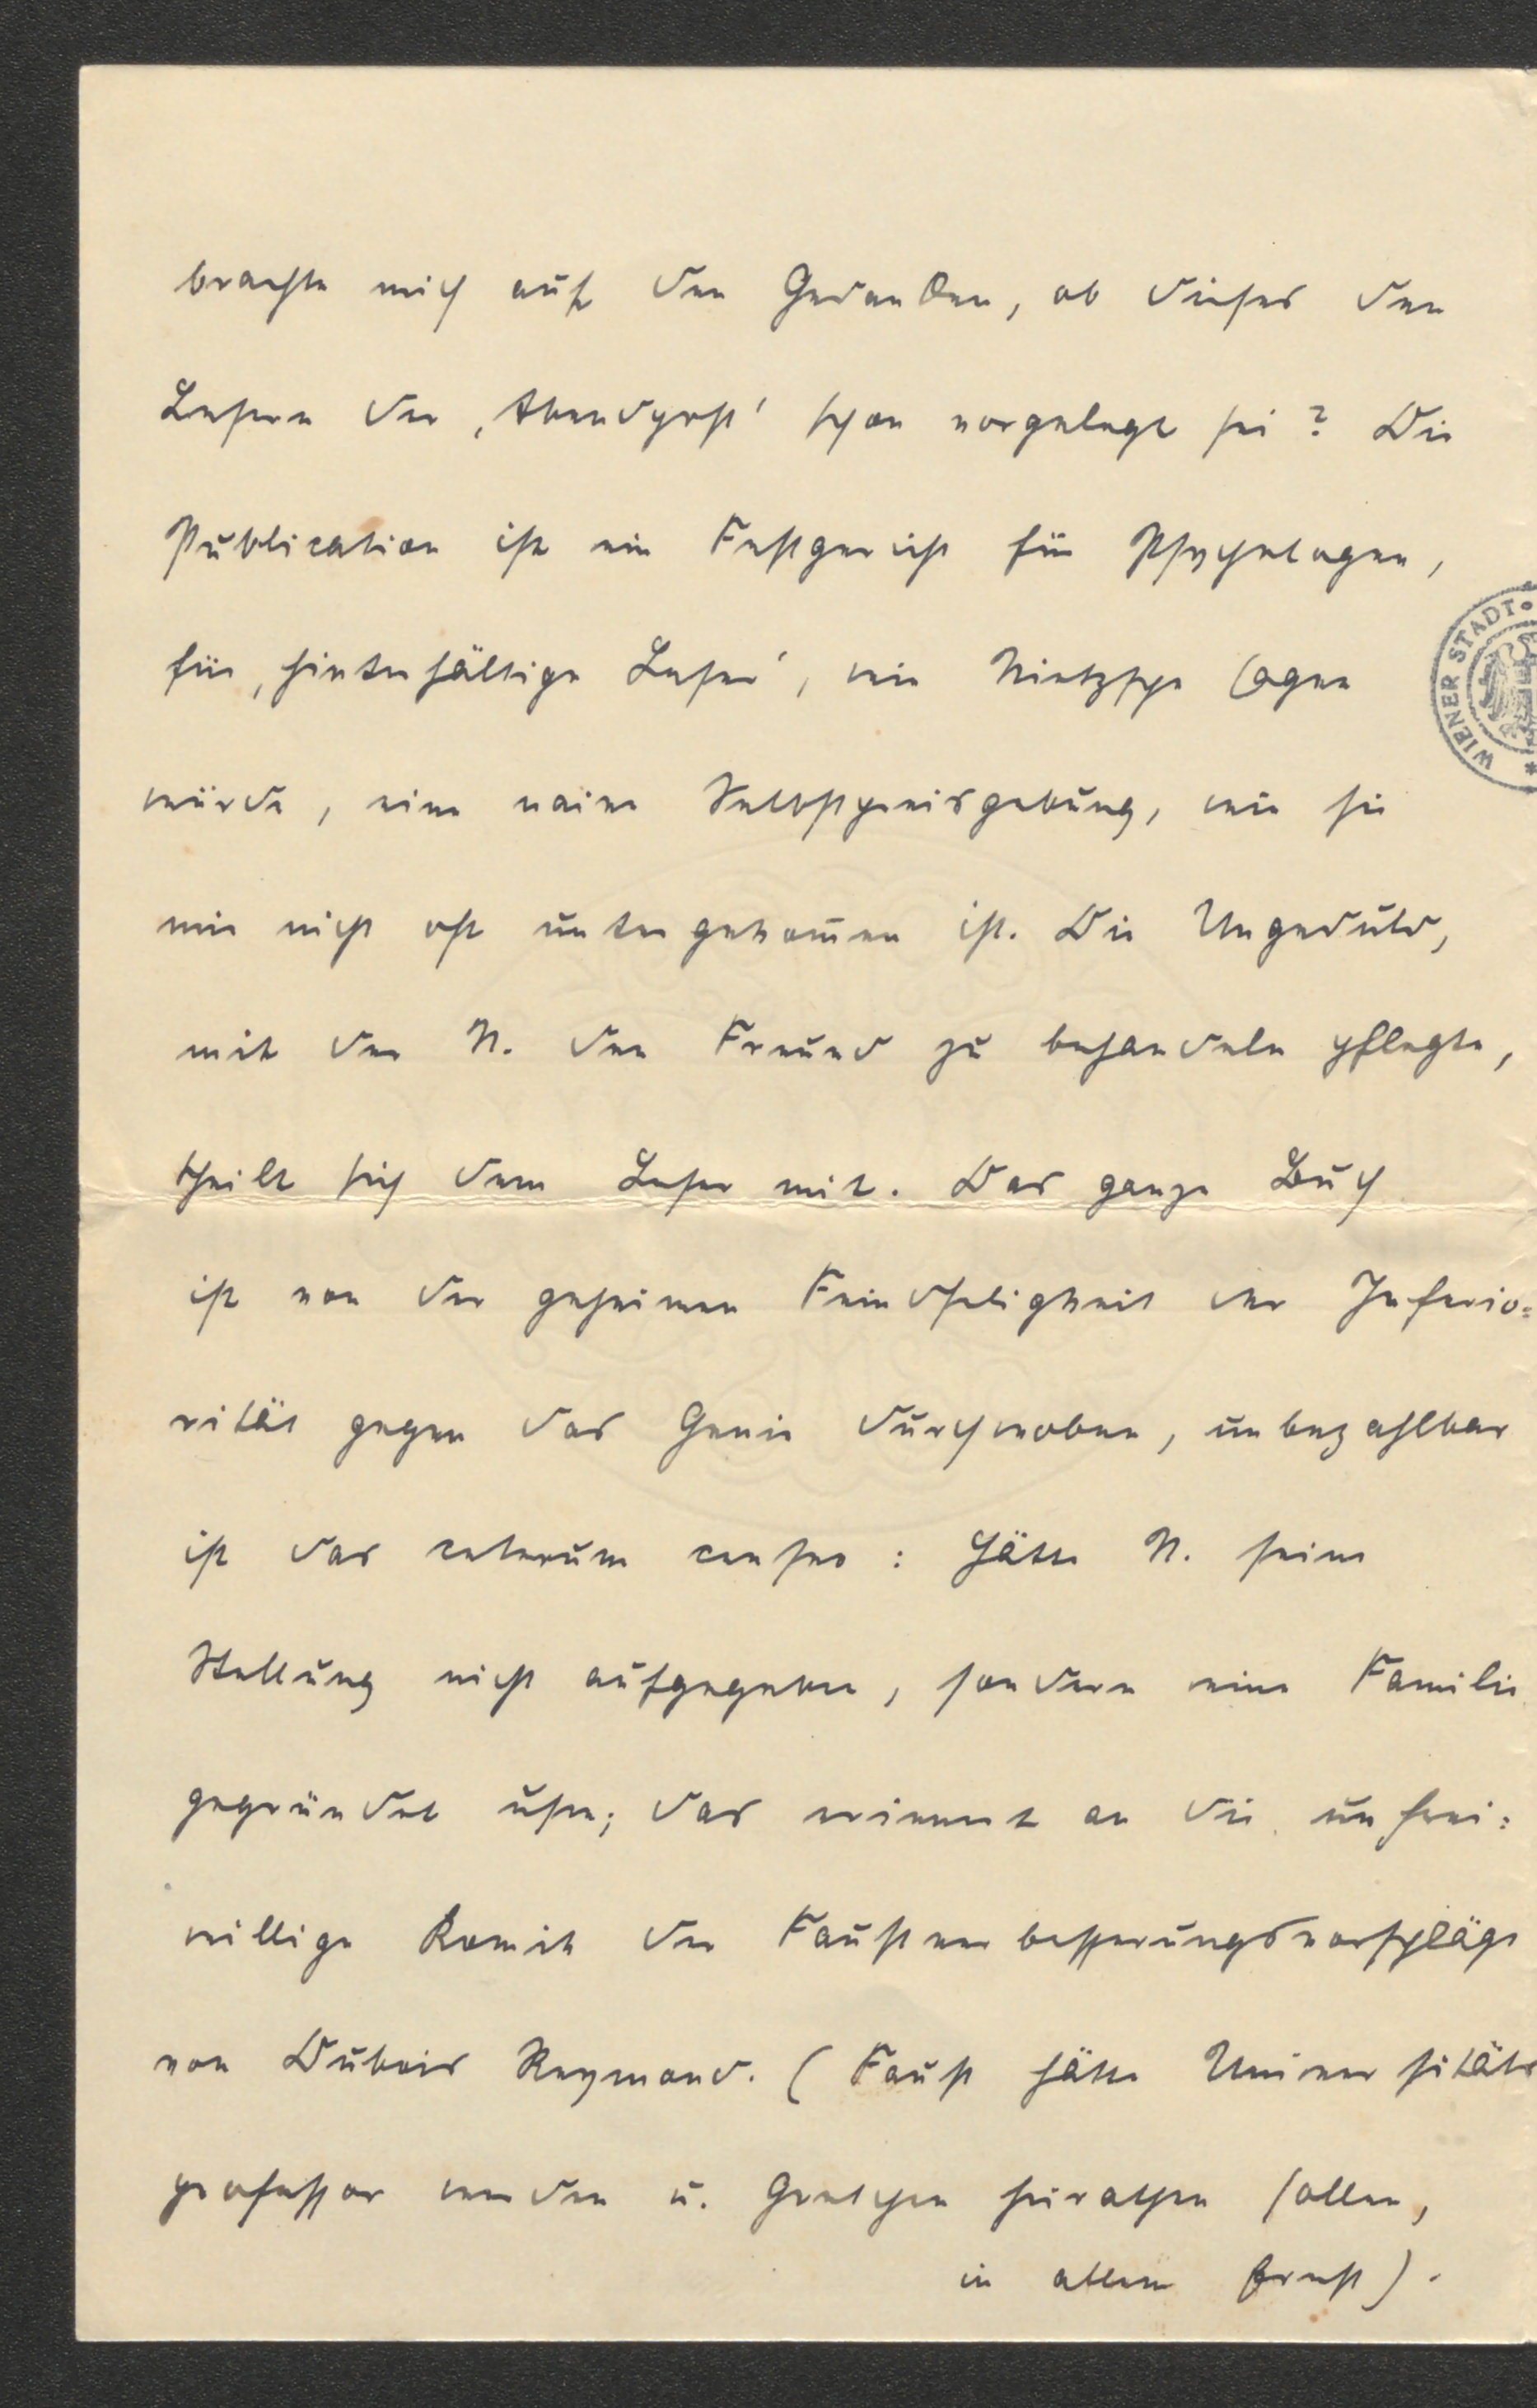 brachte mich auf den Gedanken, ob dieses den
Lesern der ‚Abendpost' schon vorgelegt sei? Die
Publication ist ein Festgericht für Psychologen,
für ‚hinterhältige Leser', wie Nietzsche sagen
würde, eine naive Selbstpreisgebung, wie sie
mir nicht oft untergekom̄en ist. Die Ungeduld,
mit der N. den Freund zu behandeln pflegte,
theilt sich dem Leser mit. Das ganze Buch
ist von der geheimen Feindseligkeit der Inferio=
rität gegen das Genie durchwoben, unbezahlbar
ist das ceterum censeo: hätte N. seine
Stellung nicht aufgegeben, sondern eine Familie
gegründet usw; das erinnert an die unfrei=
willige Komik der Faustverbesserungsvorschläge
von Dubois Reymond. (Faust hätte Universitäts
professor werden u. Gretchen heirathen sollen,
in allem Ernst).
WIENER STADT